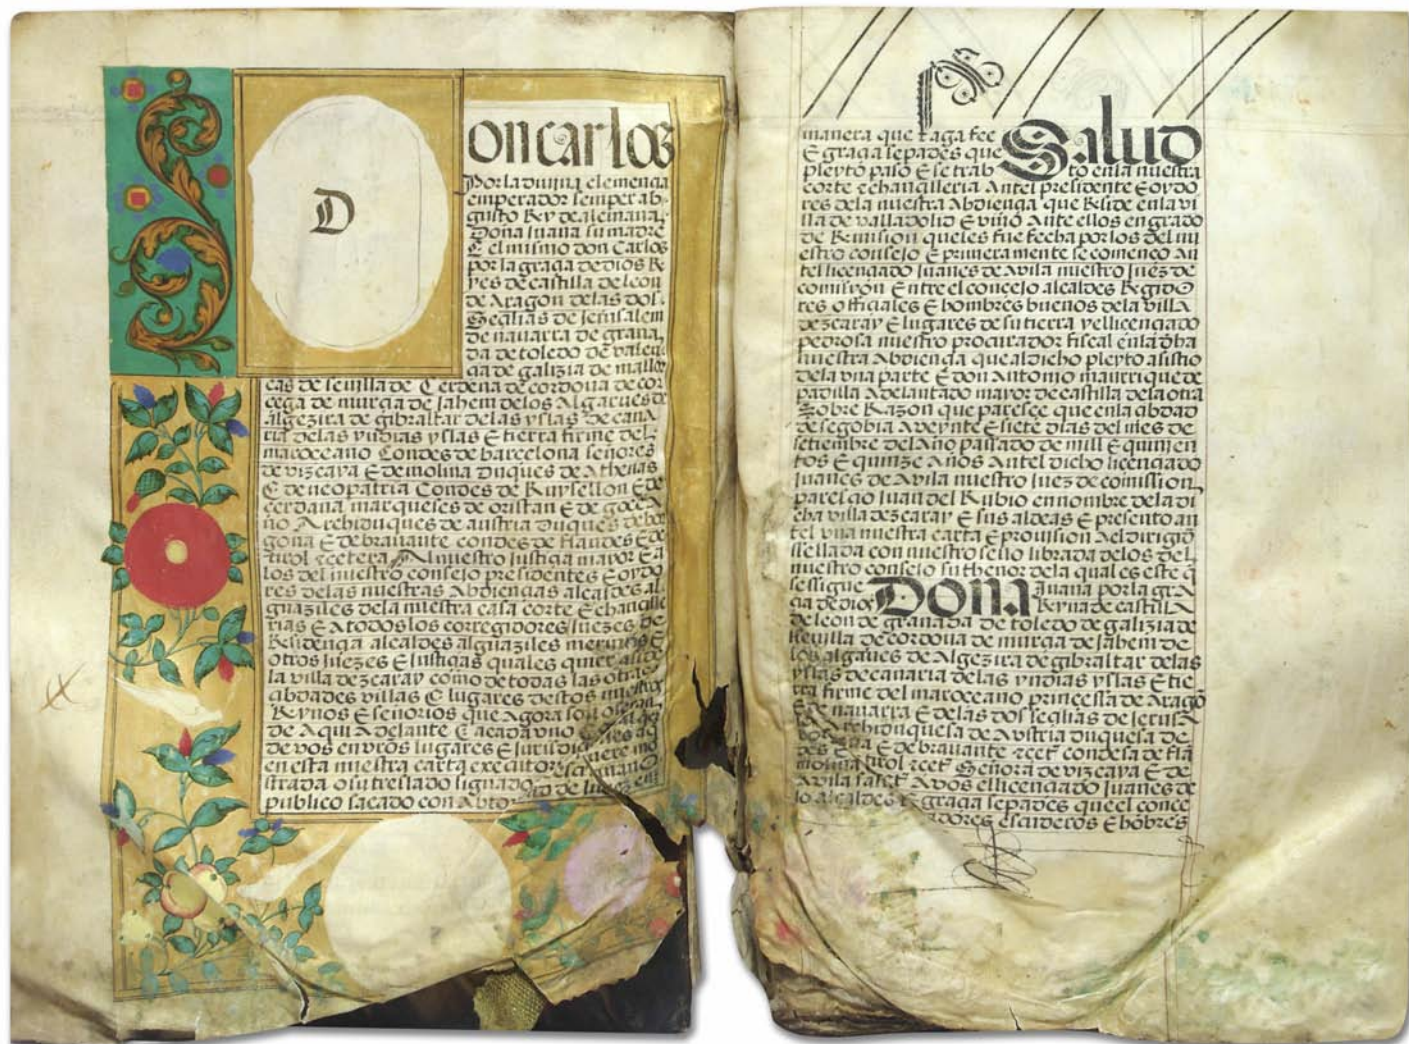 D
on carlos
Por la diuina clemencia
emperador semper ab
gusto Rey de alemana,
Dona Juana su madre
E el mismo don Carlos
por la graçia de dios Re
yes de castilla de leon
de Aragon de las dos
Seçilias de Jerusalem
de nauarra de grana
da de toledo de valen
çia de galizia de mallor
cas de seuilla de Cerdena de cordoua de cor
cega de murçia de Jahem de los Algarues de
algezira de gibraltar de las yslas de cana
ria de las yndias yslas E tierra firme del
mar oceano Condes de barcelona senores
de vizcaya E de molina Duques de Athenas
E de neopatria Condes de Ruysellon E de
cerdana marqueses de oristan E de goçea
no Archiduques de austria duques de bor
gona E de brauante condes de flandes E de
tirol zcetera Al nuestro justiçia mayor E a
los del nuestro consejo presidentes E oydo
res de las nuestras Abdiençias alcaldes al
guaziles de la nuestra casa corte E chançille
rias E a todos los corregidores juezes de
Residençia alcaldes alguaziles merinos E
otros juezes E justiçias quales quier asi de
la villa de zcaray como de todas las otras
çibdades villas E lugares destos nuestros
Reynos E senorios que Agora son o seran
de Aqui Adelante E a cada vno
de vos en vros lugares E jurisdiç
en esta nuestra carta executor
strada o su treslado signado escriuano
publico sacado con Abtor
manera que faga fee Salud
E graçia sepades que
pleyto pasó E se trab to en la nuestra
corte z chançilleria Antel presidente E oydo
res de la nuestra Abdiençia que Reside en la vi
lla de valladolid E vino Ante ellos en grado
de Remision que les fue fecha por los del nu
estro consejo E primeramente se començo An
tel liçençiado Juanes de Auila nuestro juez de
comision Entre el conçejo alcaldes Regido
res offiçiales E hombres buenos de la villa
de zcaray E lugares de su tierra y el liçençiado
pedrosa nuestro procurador fiscal en la dha
nuestra Abdiençia que al dicho pleyto asistio
de la vna parte E don Antonio manrrique de
padilla Adelantado mayor de castilla de la otra
Sobre Razon que paresçe que en la çibdad
de segobia A veynte E siete dias del mes de
setiembre del Año passado de mill E quinien
tos E quinze Años Antel dicho liçençiado
Juanes de Auila nuestro Juez de comission
paresçio Juan del Rubio en nombre de la di
cha villa de zcaray E sus aldeas E presento an
tel vna nuestra carta E prouision A el dirigid
ssellada con nuestro sello librada de los del
nuestro consejo su thenor de la qual es este q̄
se sigue DONA Juana por la gra
çia de dios Reyna de castilla
de leon de granada de toledo de galizia de
seuilla de cordoua de murçia de jahem de
los algarues de Algezira de gibraltar de las
yslas de canaria de las yndias yslas E tie
rra firme del mar oceano prinçessa de Arago
E de nauarra E de las dos seçilias de jerusa
Archiduquesa de Avstria duquesa de
E de brauante zceta condesa de fla
tirol zceta Señora de vizcaya E de
molina A vos el liçençiado Juanes de
Auila salud
graçia sepades que el conce
jo alcaldes escuderos E hobres